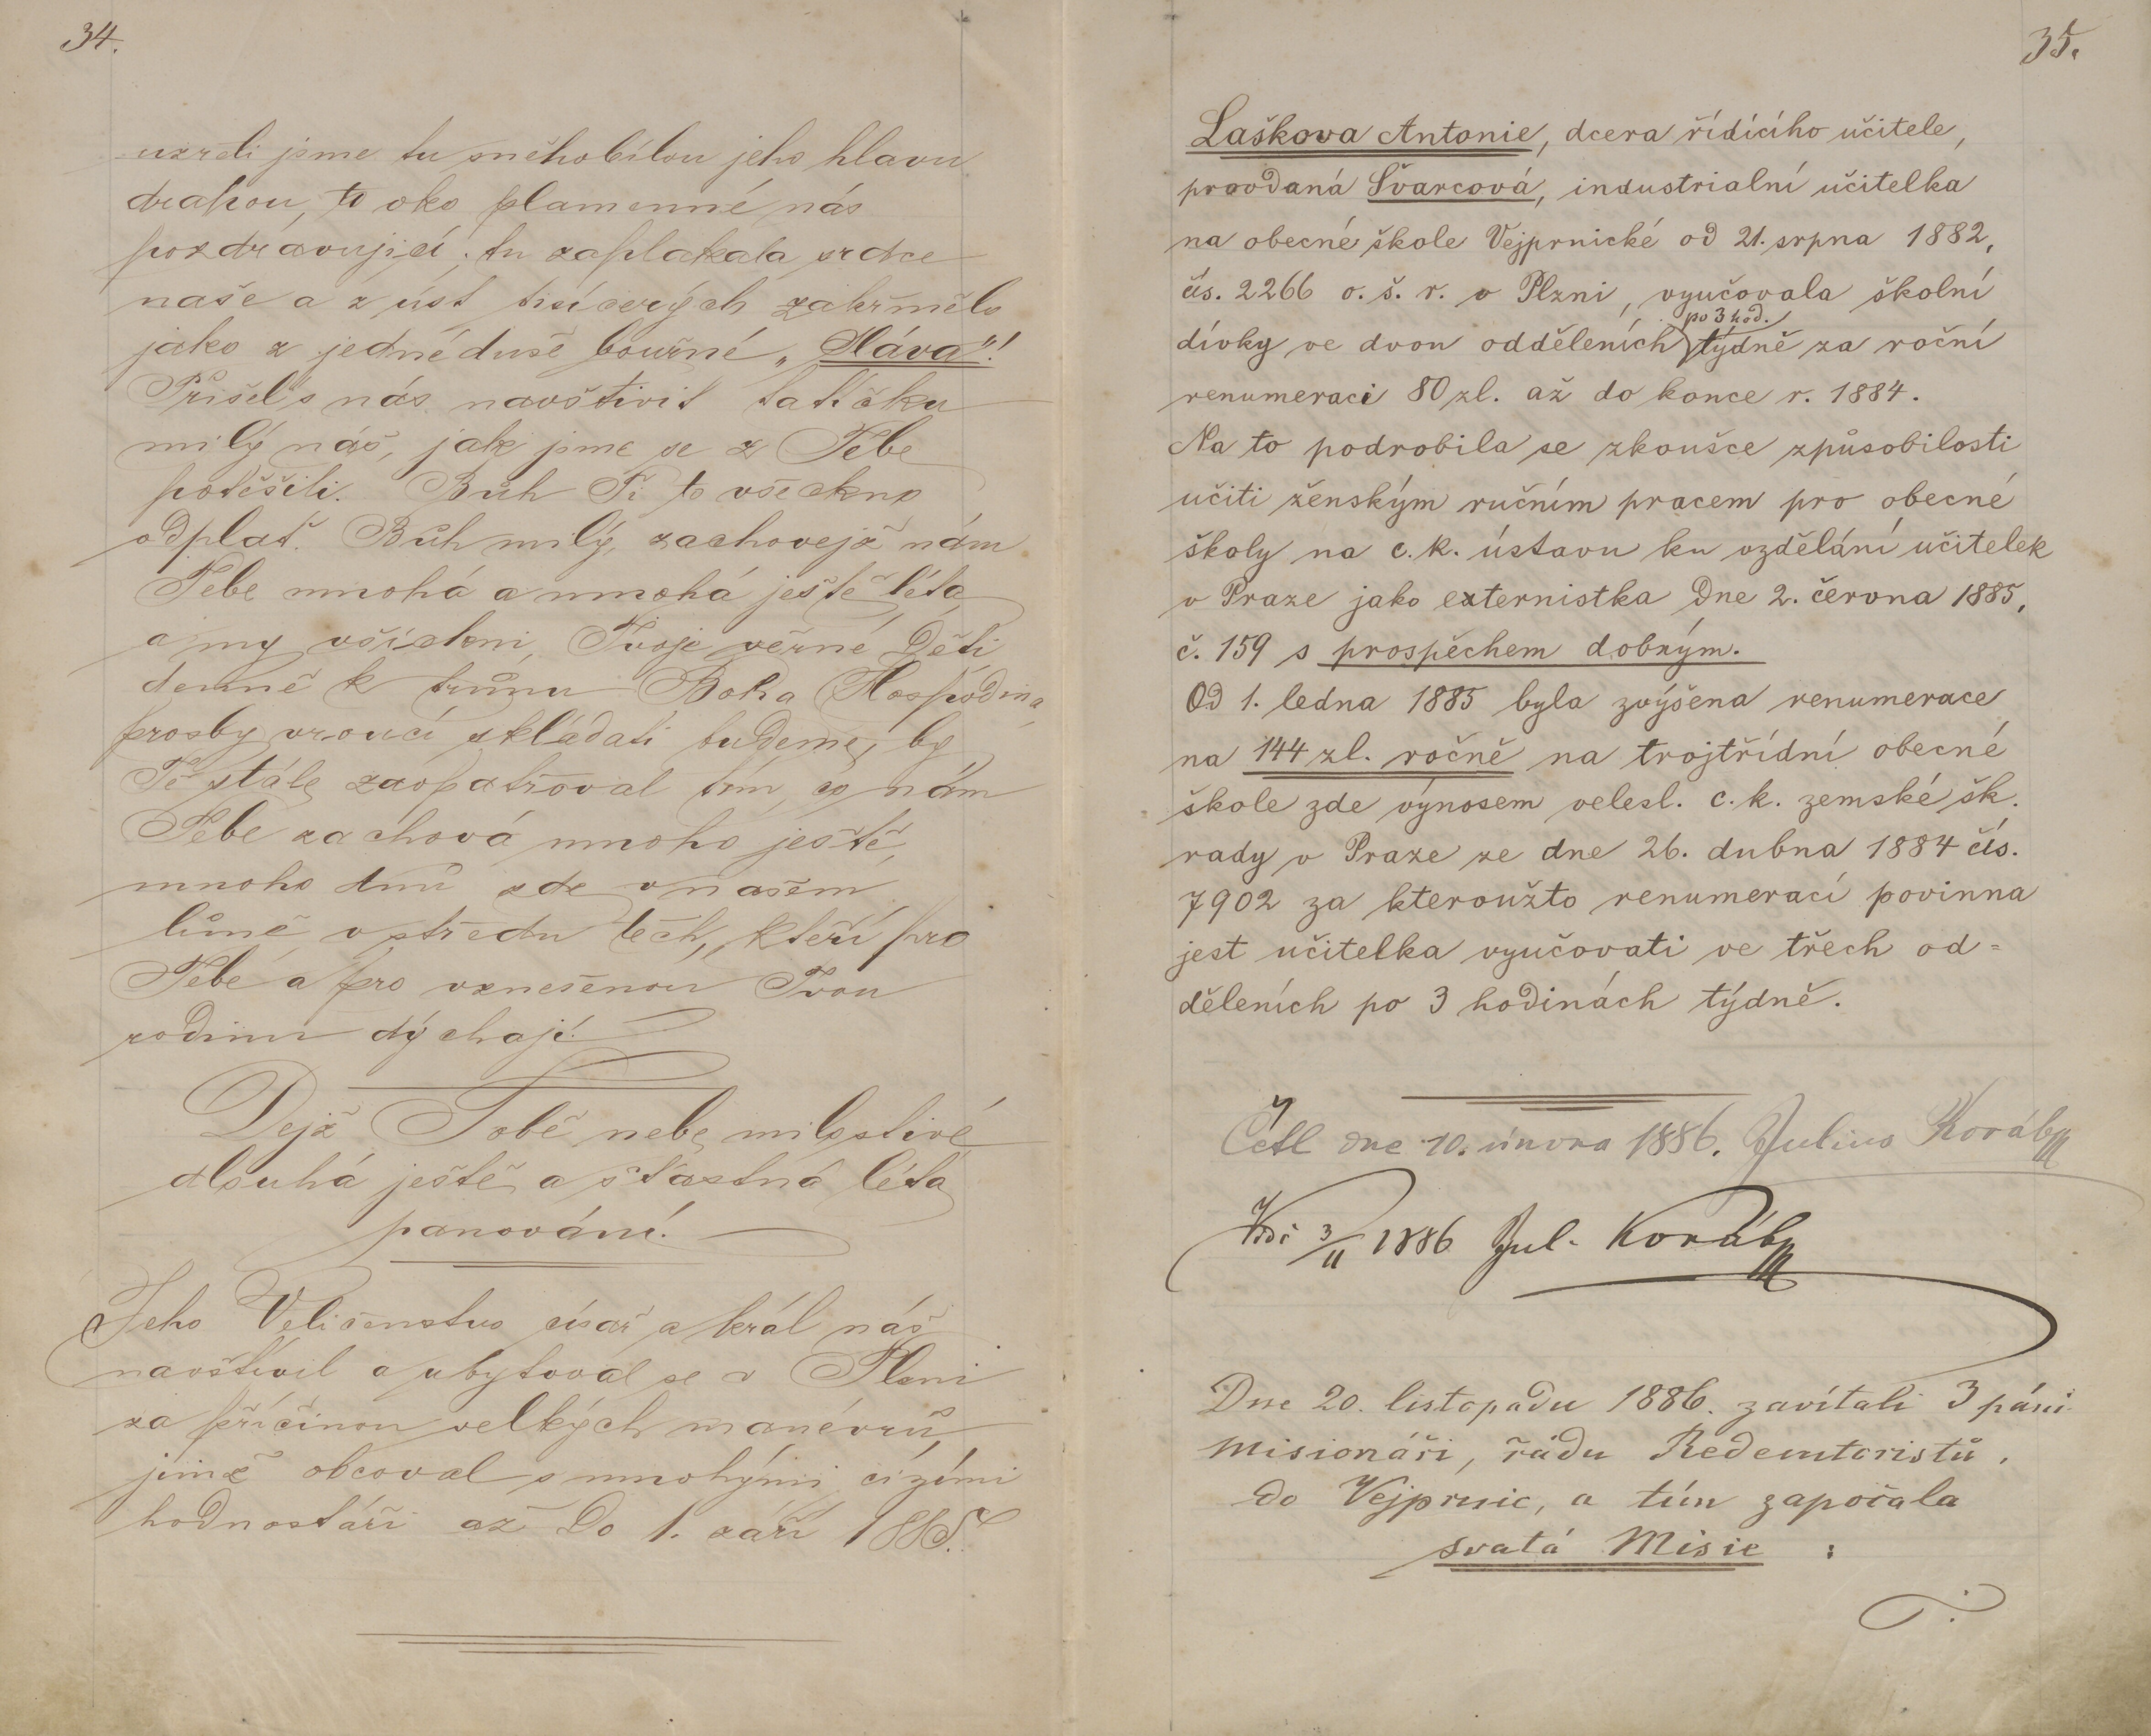 34.
uzřeli jsme tu sněhobílou jeho hlavu
drahou, to oko plamenné nás
pozdravující; tu zaplakala srdce
naše a z úst tisícerých zahřmělo
jako z jedné duše bouřné „Sláva"!
Přišel's nás navštívit tatíčku
milý náš, jak jsme se z Tebe
potěšili. Bůh Ti to všeckno
odplať. Bůh milý, zachovejž nám
Tebe mnohá a mnohá ještě léta
a my všickni, Tvoje věrné Děti
denně k trůnu Boha Hospodina
prosby vroucí skládati budeme, by
Tě stále zaopatřoval tím, co nám
Tebe zachová mnoho ještě,
mnoho dnů zde v našem
lůně v středu těch, kteří pro
Tebe a pro vznešenou Tvou
rodinu dýchají.
Dejž Tobě nebe milostivé
dlouhá ještě a šťastná léta
panování.
Jeho Veličenstvo císař a král náš
navštívil a ubytoval se v Plzni
za příčinou velkých manévrů,
jimž obcoval s mnohými cizími
hodnostáři až do 1. září 1885.
35.
Laškova Antonie, dcera řídícího učitele,
provdaná Švarcová, industrialní učitelka
na obecné škole Vejprnické od 21. srpna 1882,
čís. 2266 o. š. r. v Plzni, vyučovala školní
po 3 hod.
dívky ve dvou odděleních týdně za roční
renumeraci 80 zl. až do konce r. 1884.
Na to podrobila se zkoušce způsobilosti
učiti ženským ručním pracem pro obecné
školy na c. k. ústavu ku vzdělání učitelek
v Praze jako externistka dne 2. června 1885,
č. 159 s prospěchem dobrým.
Od 1. ledna 1885 byla zvýšena renumerace
na 144 zl. ročně na trojtřídní obecné
škole zde výnosem velesl. c. k. zemské šk.
rady v Praze ze dne 26. dubna 1884 čís.
7902 za kteroužto renumerací povinna
jest učitelka vyučovati ve třech od=
děleních po 3 hodinách týdně.
Četl dne 10. února 1886. Julius Koráb
3/11 1886 Jul. Koráb
Dne 20. listopadu 1886. zavítali 3 páni
misionáři, řádu Redemtoristů,
do Vejprnic, a tím započala
svatá Misie :